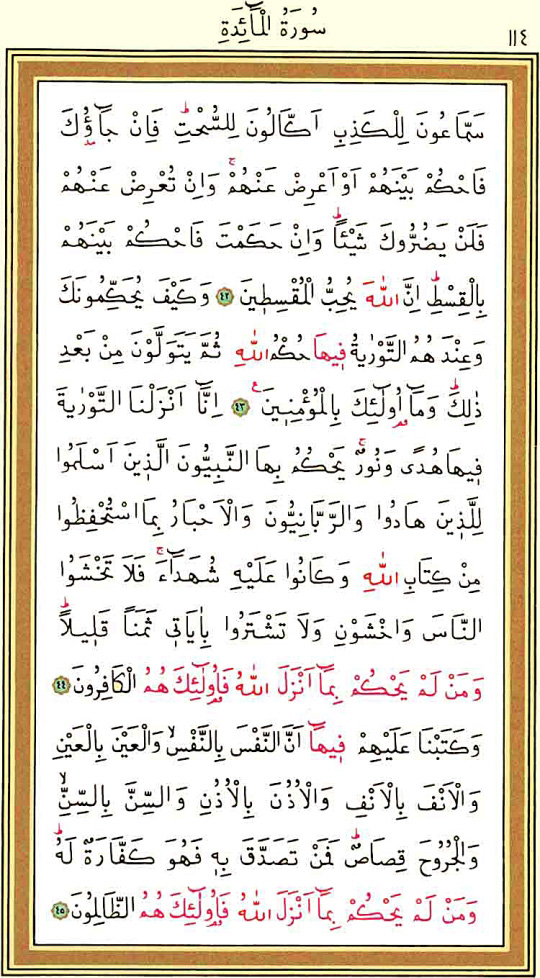 سُورَةُ الْمَٓائِدَةِ
١١٤
سَمَّاعُونَ لِلْكَذِبِ اَكَّالُونَ لِلسُّحْتِۜ فَاِنْ جَٓاؤُ۫كَ
فَاحْكُمْ بَيْنَهُمْ اَوْ اَعْرِضْ عَنْهُمْۚ وَاِنْ تُعْرِضْ عَنْهُمْ
فَلَنْ يَضُرُّوكَ شَيْـًٔاۜ وَاِنْ حَكَمْتَ فَاحْكُمْ بَيْنَهُمْ
بِالْقِسْطِۜ اِنَّ اللّٰهَ يُحِبُّ الْمُقْسِط۪ينَ ﴿٤٢﴾ وَكَيْفَ يُحَكِّمُونَكَ
وَعِنْدَهُمُ التَّوْرٰيةُ ف۪يهَا حُكْمُ اللّٰهِ ثُمَّ يَتَوَلَّوْنَ مِنْ بَعْدِ
ذٰلِكَۜ وَمَٓا اُو۬لٰٓئِكَ بِالْمُؤْمِن۪ينَ۟ ﴿٤٣﴾ اِنَّٓا اَنْزَلْنَا التَّوْرٰيةَ
ف۪يهَا هُدًى وَنُورٌۚ يَحْكُمُ بِهَا النَّبِيُّونَ الَّذ۪ينَ اَسْلَمُوا
لِلَّذ۪ينَ هَادُوا وَالرَّبَّانِيُّونَ وَالْاَحْبَارُ بِمَا اسْتُحْفِظُوا
مِنْ كِتَابِ اللّٰهِ وَكَانُوا عَلَيْهِ شُهَدَٓاءَۚ فَلَا تَخْشَوُا
النَّاسَ وَاخْشَوْنِ وَلَا تَشْتَرُوا بِاٰيَات۪ي ثَمَنًا قَل۪يلًاۜ
وَمَنْ لَمْ يَحْكُمْ بِمَٓا اَنْزَلَ اللّٰهُ فَاُو۬لٰٓئِكَ هُمُ الْكَافِرُونَ ﴿٤٤﴾
وَكَتَبْنَا عَلَيْهِمْ ف۪يهَٓا اَنَّ النَّفْسَ بِالنَّفْسِۙ وَالْعَيْنَ بِالْعَيْنِ
وَالْاَنْفَ بِالْاَنْفِ وَالْاُذُنَ بِالْاُذُنِ وَالسِّنَّ بِالسِّنِّۙ
وَالْجُرُوحَ قِصَاصٌۜ فَمَنْ تَصَدَّقَ بِه۪ فَهُوَ كَفَّارَةٌ لَهُۜ
وَمَنْ لَمْ يَحْكُمْ بِمَٓا اَنْزَلَ اللّٰهُ فَاُو۬لٰٓئِكَ هُمُ الظَّالِمُونَ ﴿٤٥﴾